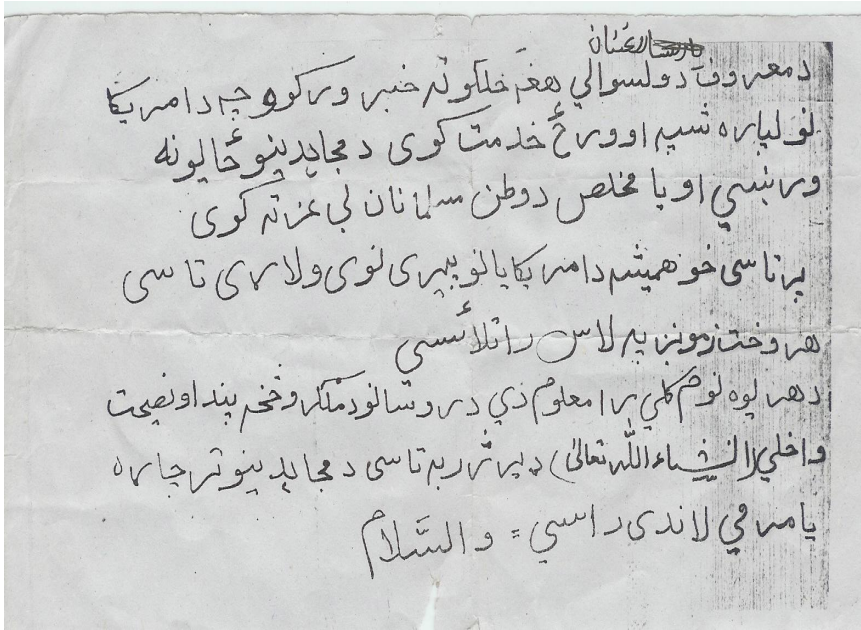 د معروف د ولسوالي هغه خلکو ته خبر ورکوو چه د امریکا
لپاره شپه او ورځ خدمت کوی د مجاهدینو ځایونه
ورښيي او یا مخلص د وطن مسلمانان بی عزته کوی
پر تاسی خو همیشه د امریکایانو پیری نوی ولاړی تاسی
هر وخت زمونږ په لاس راتلائسی
د هر یوه نوم کلي را معلوم دي د روستانو د ملګرو څخه پند او نصیحت
واخلي (انشاءالله تعالی) ډیر ژر به تاسی د مجاهدینو تر چاړه
یا مرمي لاندی راسي = والسَّلام